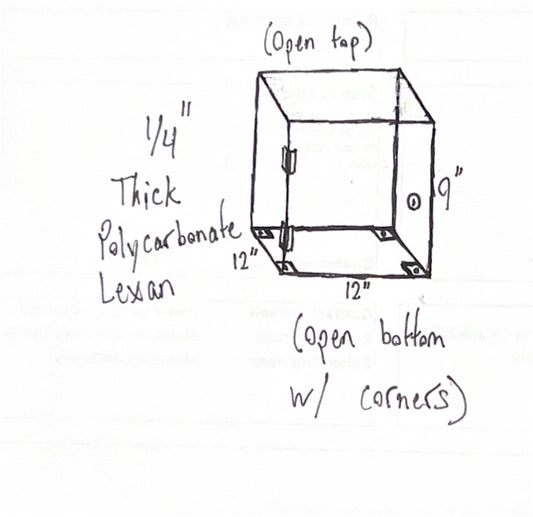 (Open top)
1/4"
Thick
Polycarbonate
Lexan
9"
12"
12"
(Open bottom
w/ corners)